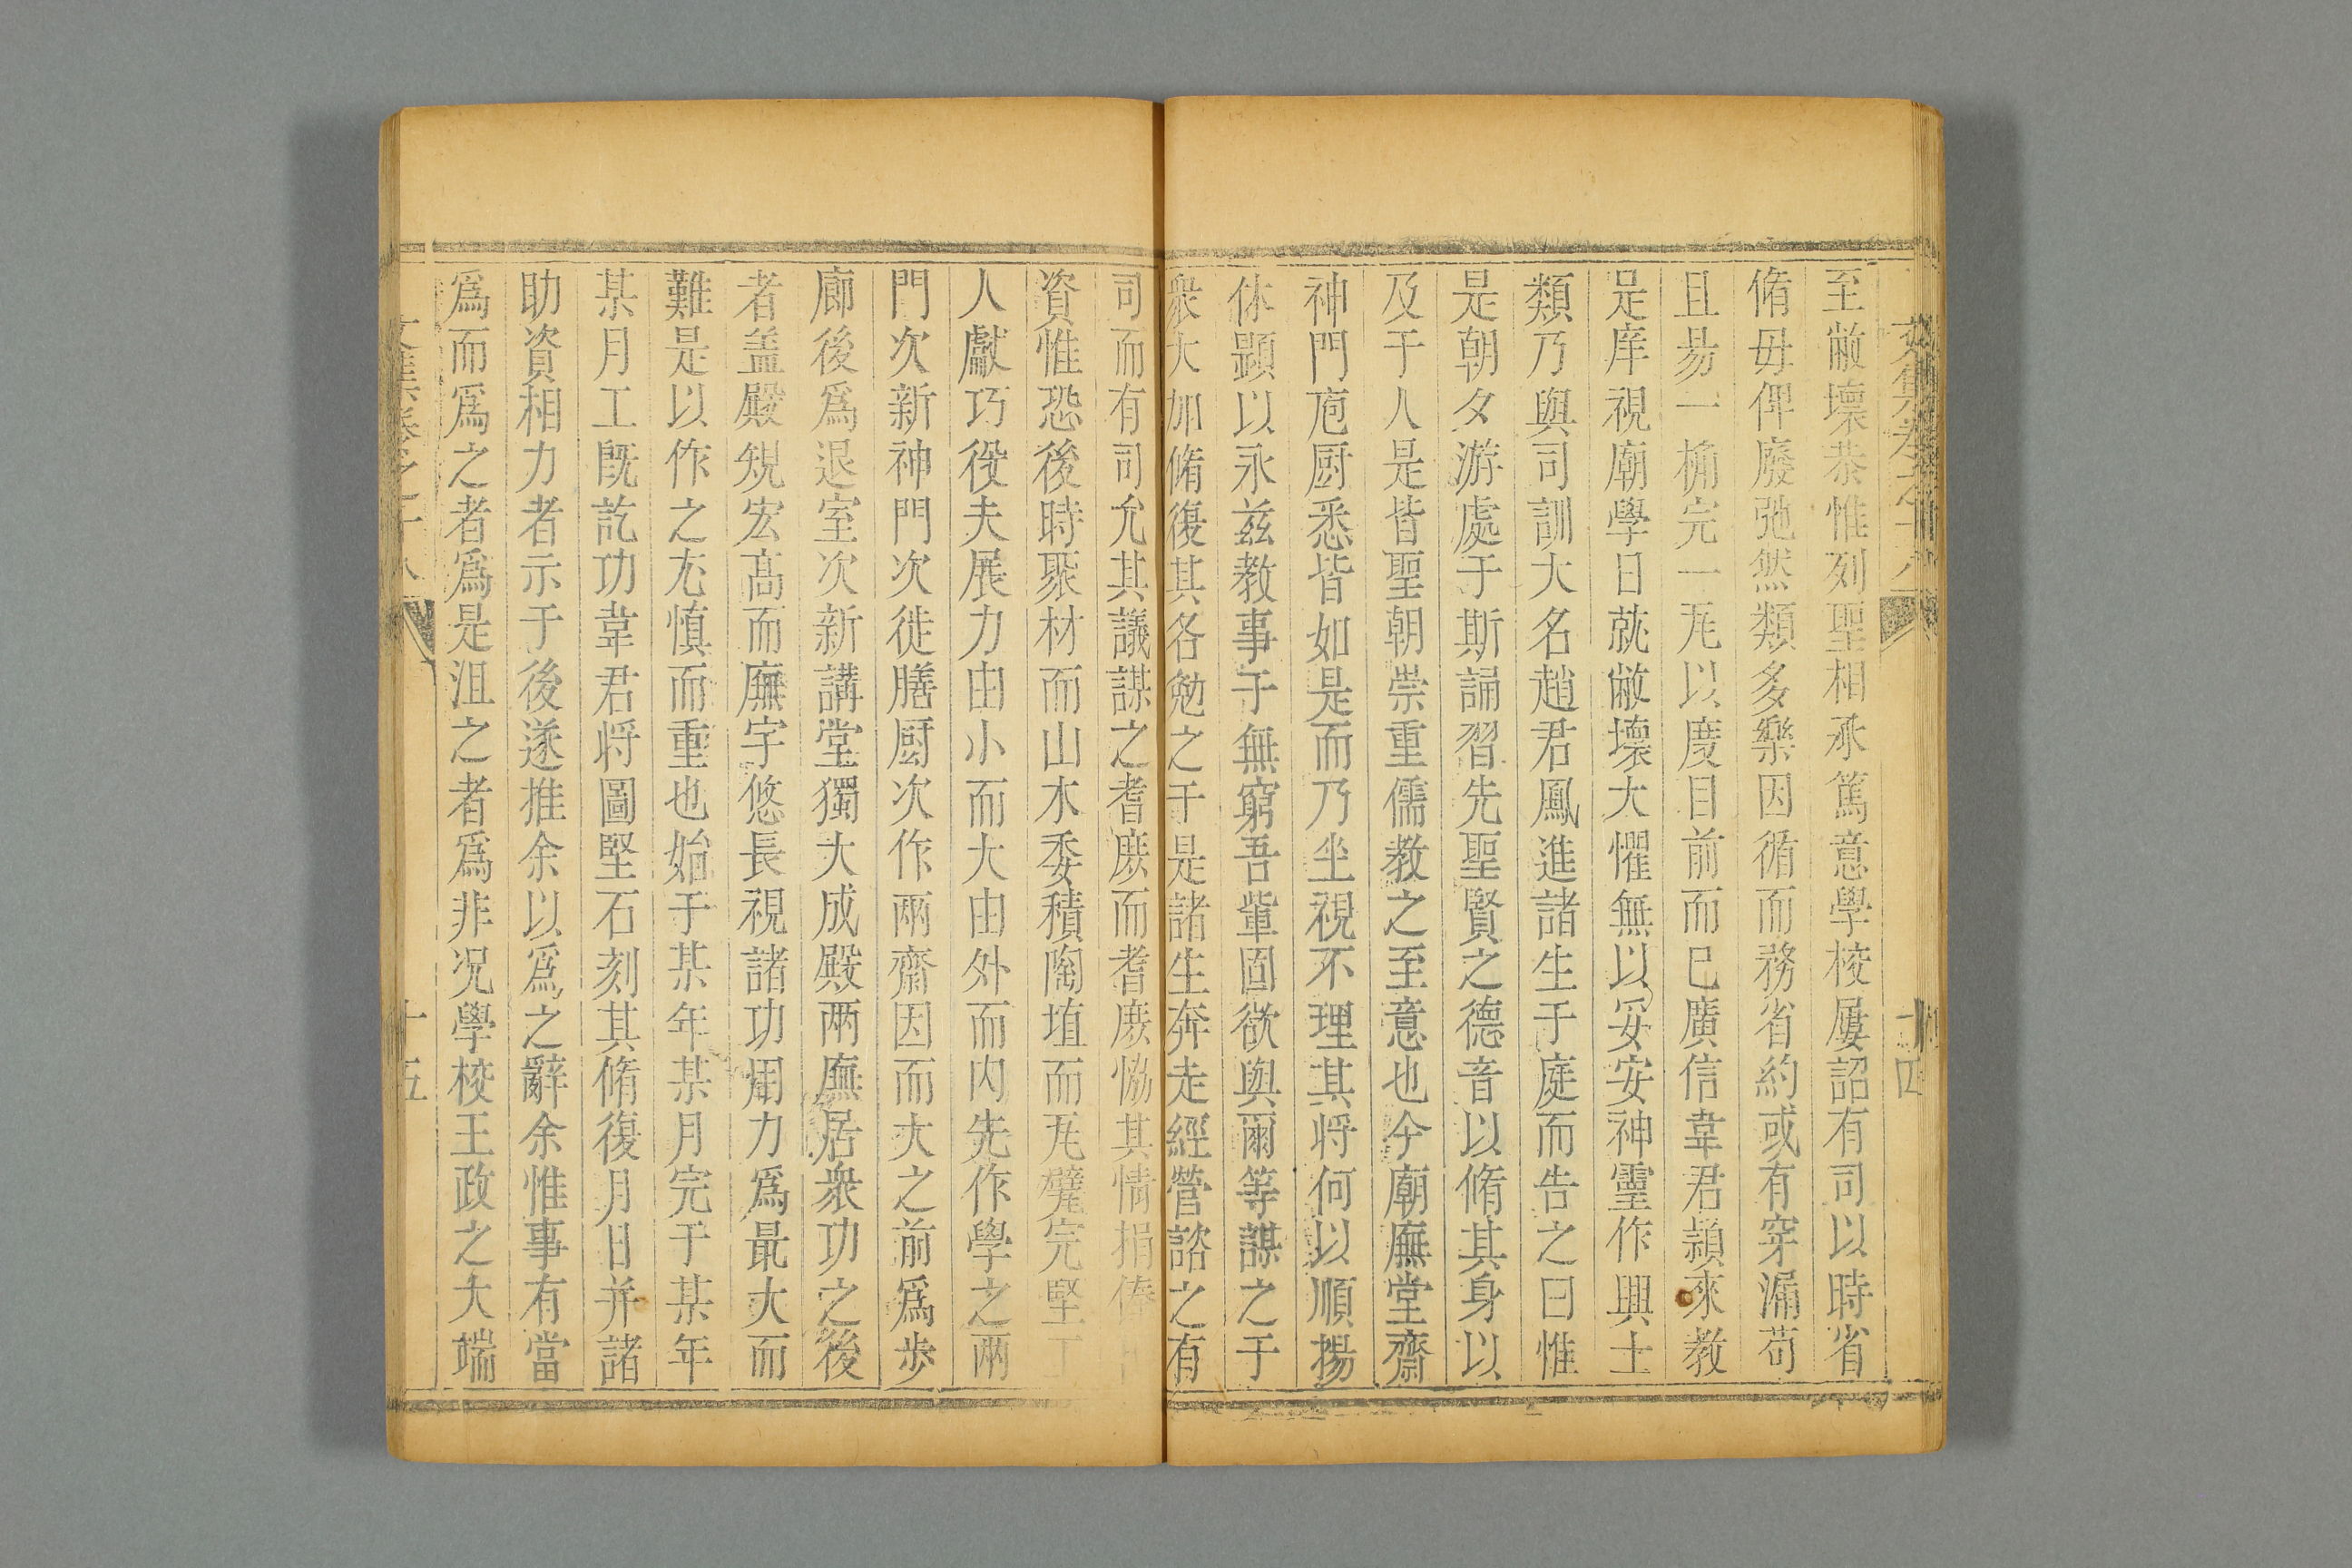 文集卷之十八
十四
至敝壞恭惟列聖相承篤意學校屢詔有司以時省
脩毋俾廢弛然類多樂因循而務省約或有穿漏苟
且易一桷完一瓦以度目前而已廣信韋君頴來教
是庠視廟學日就敝壞大懼無以妥安神靈作興士
類乃與司訓大名趙君鳳進諸生于庭而告之曰惟
是朝夕游處于斯誦習先聖賢之德音以脩其身以
及于人是皆聖朝崇重儒教之至意也今廟廡堂齋
神門庖厨悉皆如是而乃坐視不理其将何以順揚
休顯以永兹教事于無窮吾輩固欲與爾等謀之于
衆大加脩復其各勉之于是諸生奔走經營諮之有
司而有司允其議謀之耆庶而耆庶恊其情捐俸
資惟恐後時聚材而山木委積陶埴而瓦甓完堅工
人獻巧役夫展力由小而大由外而内先作學之兩
門次新神門次徙膳厨次作兩齋因而大之前爲歩
廊後爲退室次新講堂獨大成殿两廡居衆功之後
者盖殿䂓宏髙而廡宇悠長視諸功用力爲最大而
難是以作之尤慎而重也始于某年某月完于某年
某月工既訖功韋君将圖堅石刻其脩復月日并諸
助資相力者示于後遂推余以爲之辭余惟事有當
爲而爲之者爲是沮之者爲非况學校王政之大端
文集卷之十八
十五